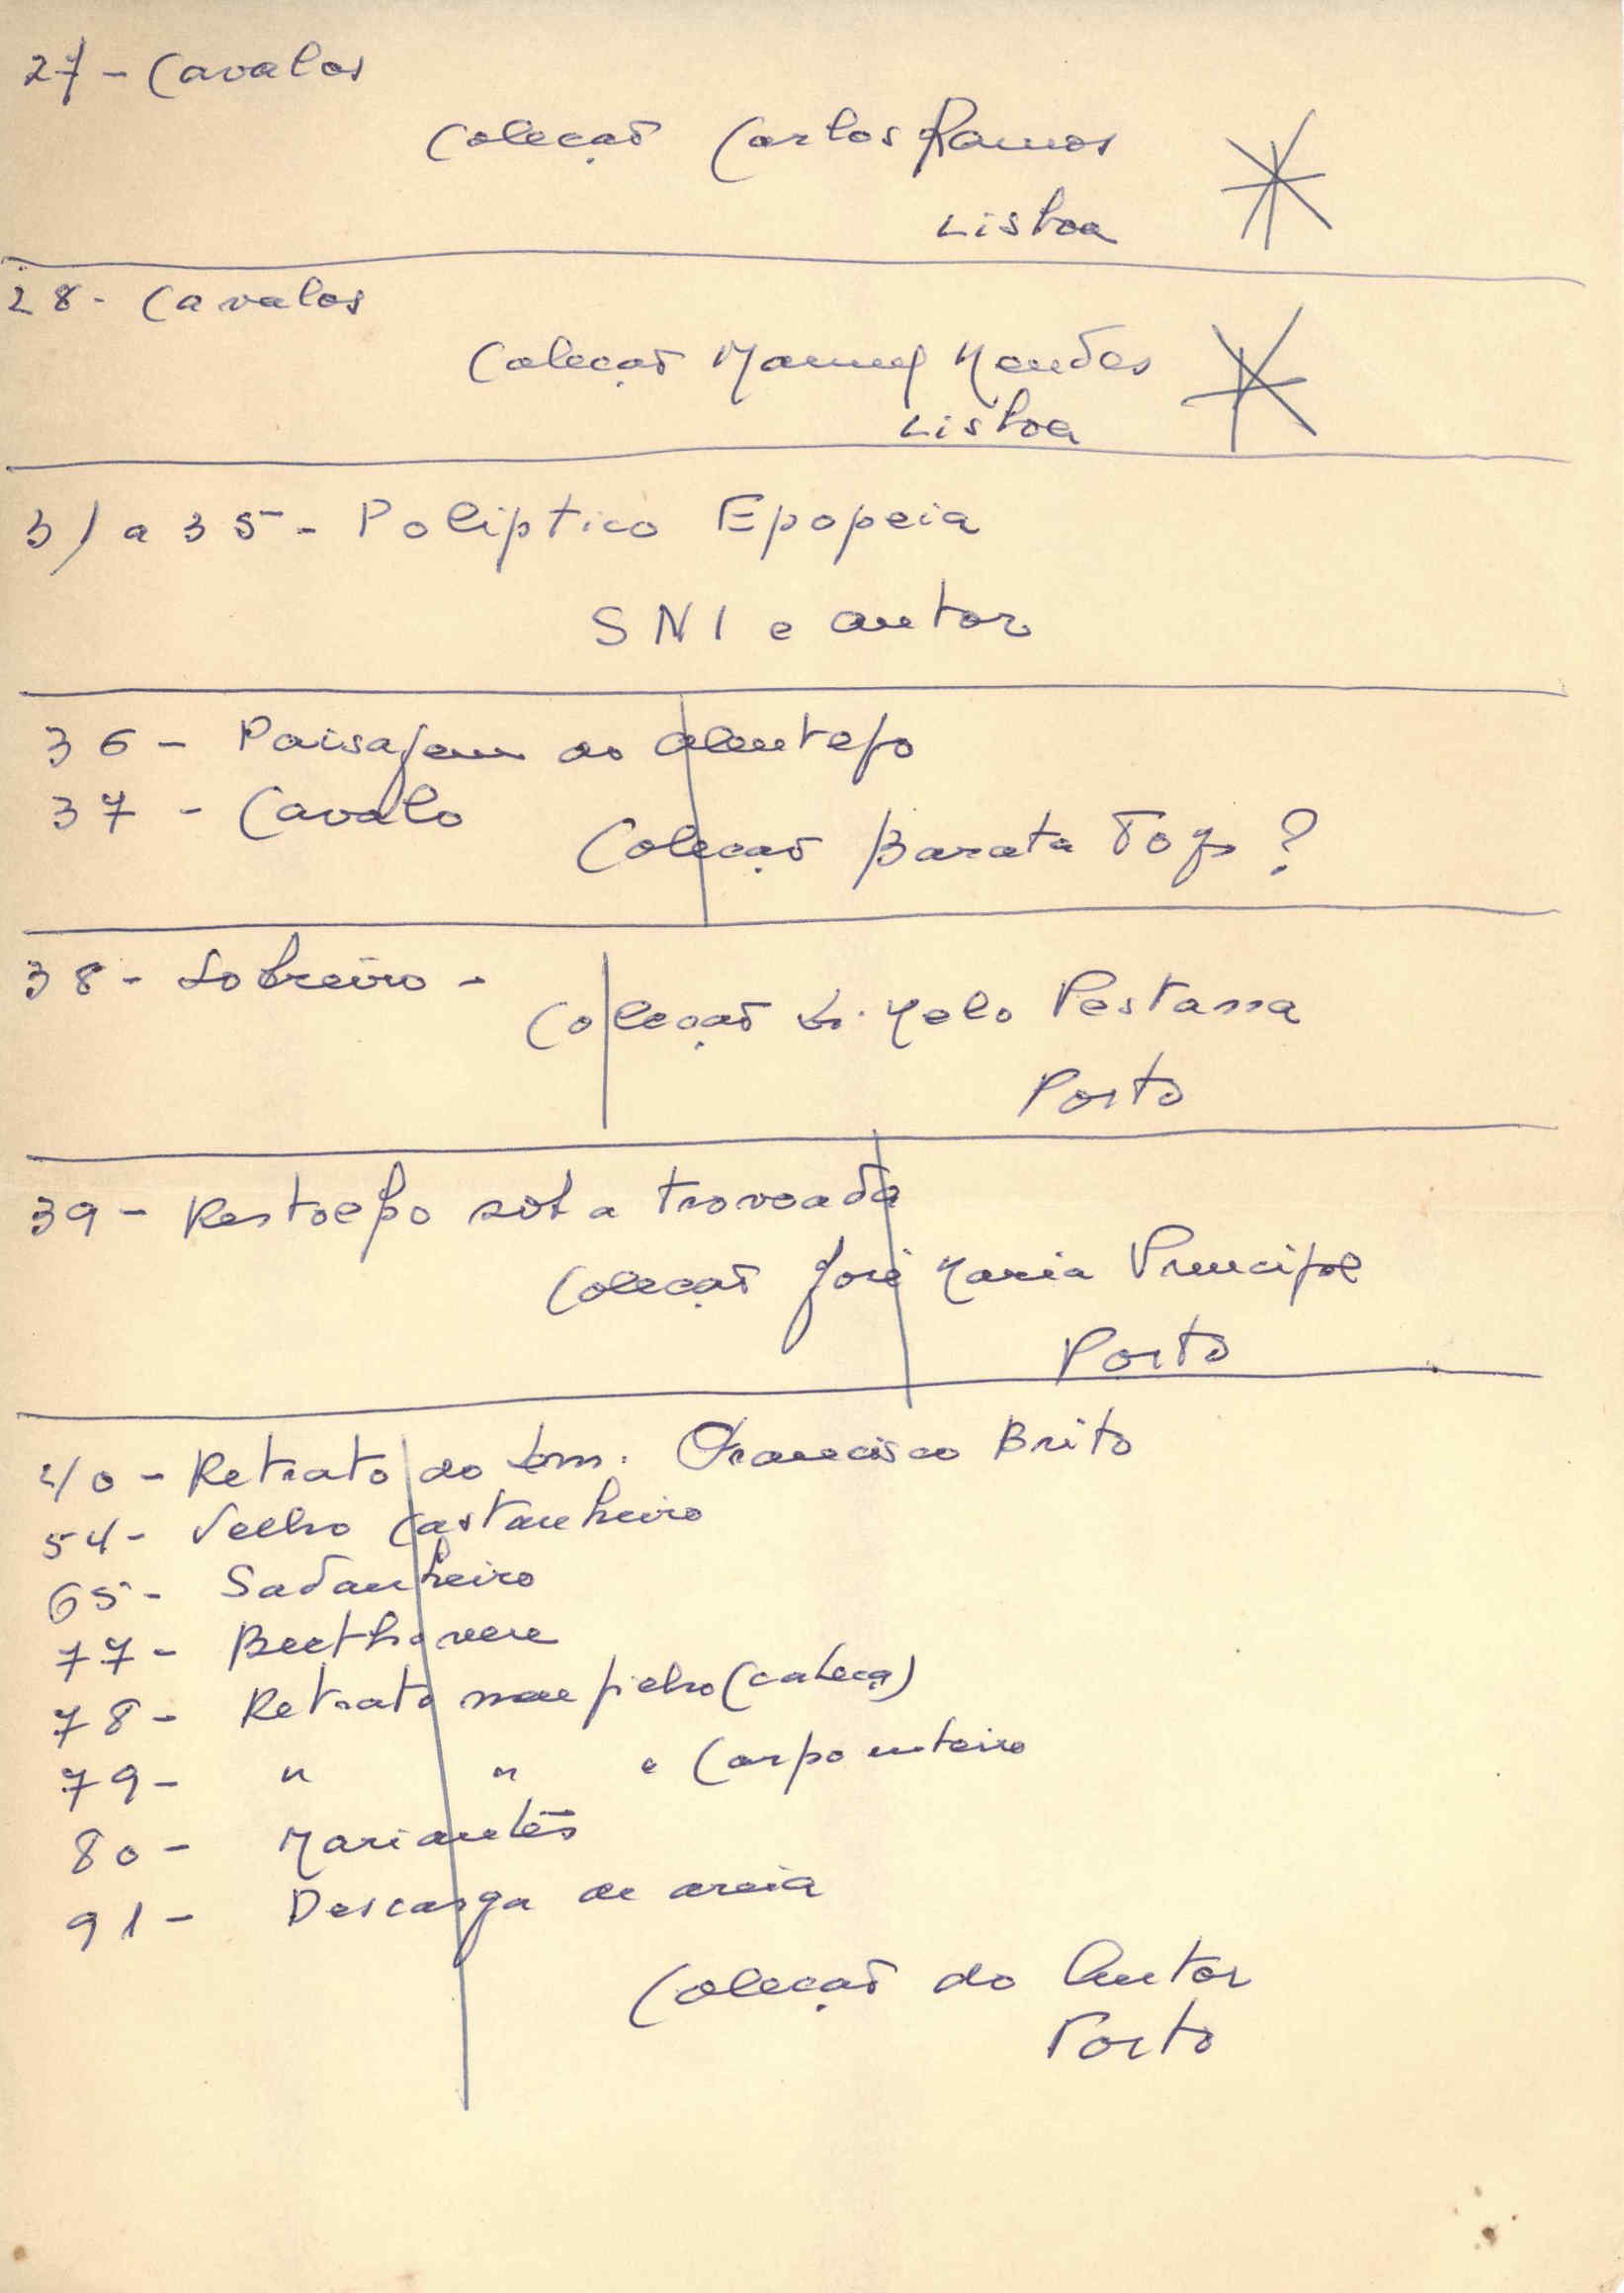 27 - Cavalos
Coleção Carlos Ramos
Lisboa
28 - Cavalos
Coleção Manuel Mendes
Lisboa
31 a 35 - Poliptico Epopeia
SNI e autor
36 - Paisagem do Alentejo
37 - Cavalo
Coleção Barata ?
38 - Sobreiro -
Coleção Melo Pestana
Porto
39 - Restolho sob a trovoada
Coleção José Maria Principe
Porto
40 - Retrato do Francisco Brito
54 - Velho Castanheiro
65 - Gadanheiro
77 - Beethoven
78 - Retrato meu filho (cabeça)
79 - " " " Corpo inteiro
80 -
91 - Descarga de areia
Coleção do Autor
Porto